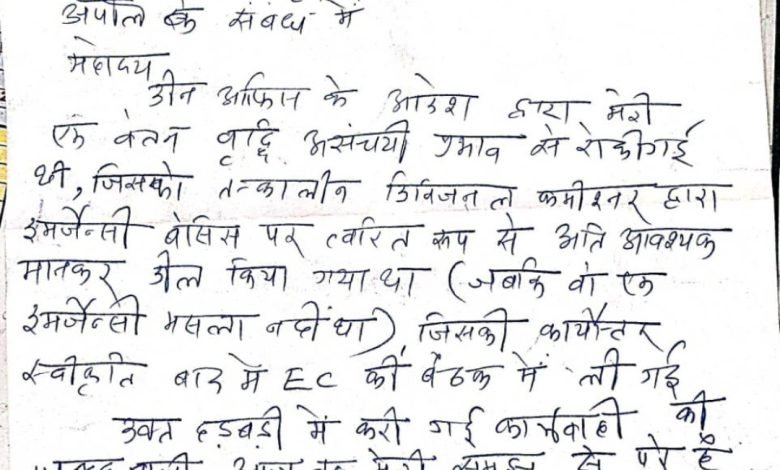 अपील के संबंध में
महोदय
डीन आफिस के आदेश द्वारा मेरी
एक वेतन वृद्धि असंचयी प्रभाव से रोकी गई
थी, जिसको तत्कालीन डिविजनल कमीश्नर द्वारा
इमर्जेन्सी बेसिस पर त्वरित रूप से अति आवश्यक
मानकर डील किया गया था (जबकि वो एक
इमर्जेन्सी मसला नहीं था), जिसकी कार्योत्तर
स्वीकृति बाद में EC की बैठक में ली गई
उक्त हड़बड़ी में करी गई कार्यवाही की
आज तक मेरी समझ से परे है